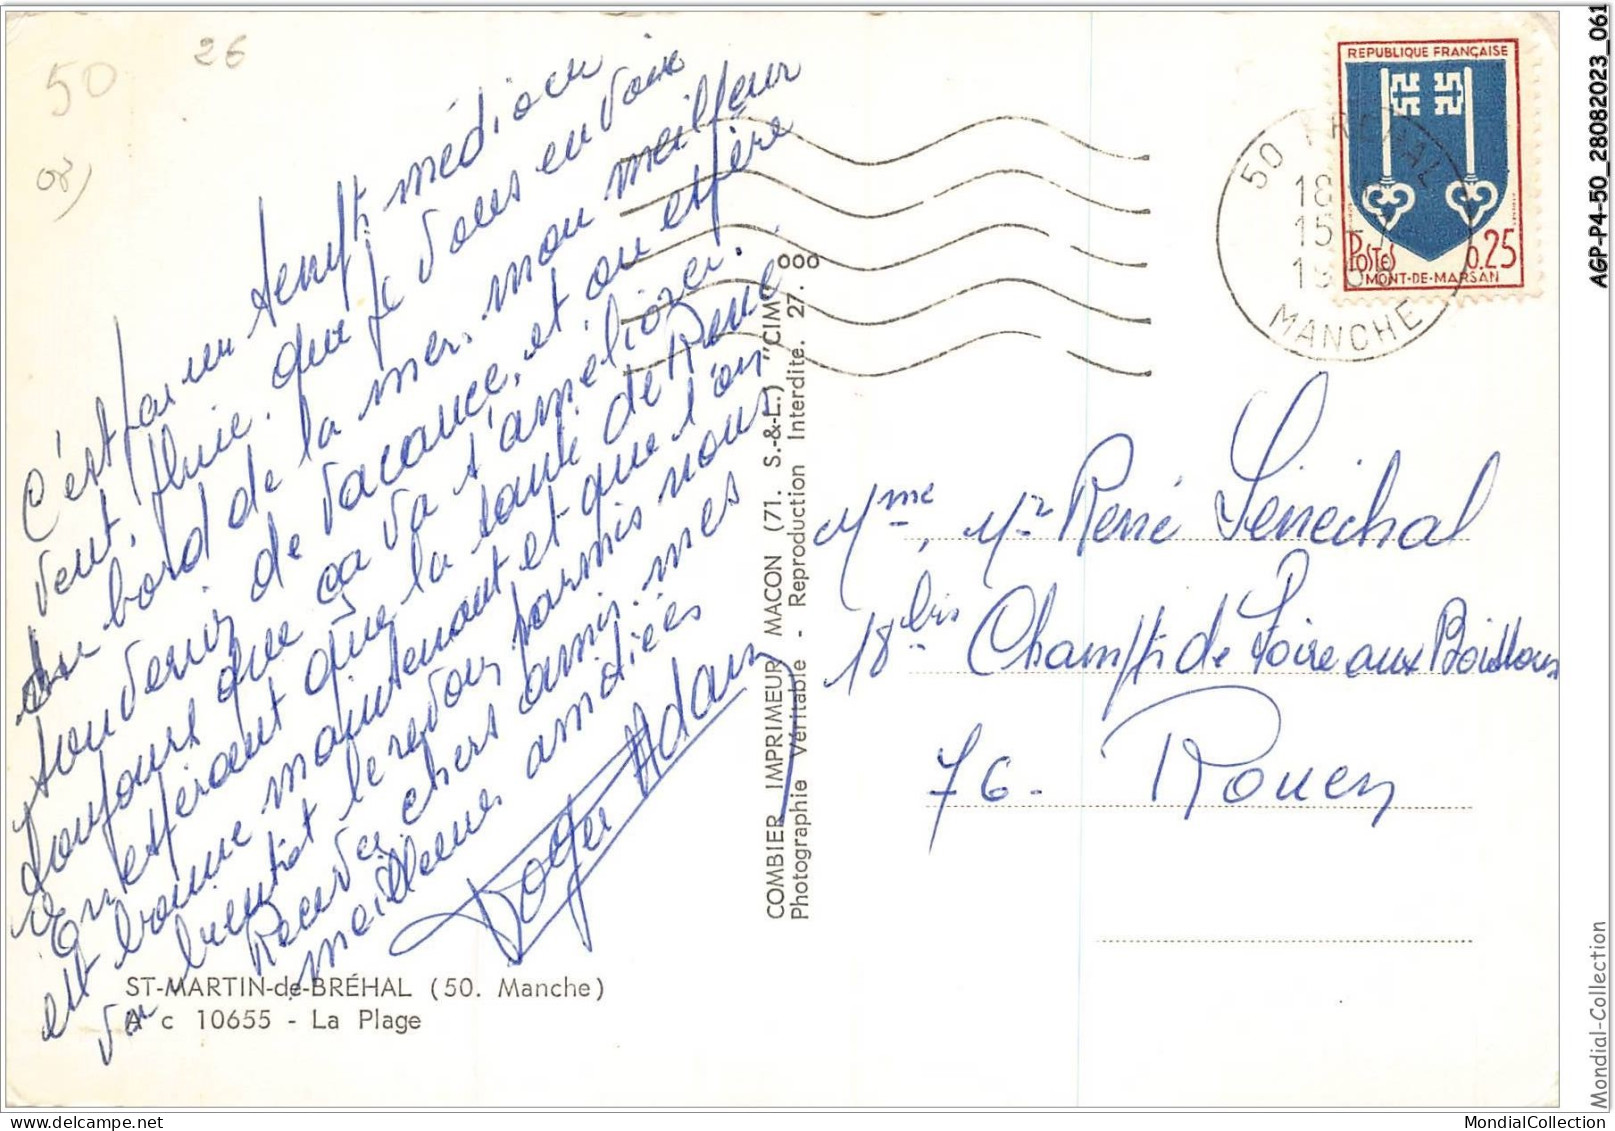 50
26
08)
C'est par un temps médiocre
vent, pluie. que je vous envoie
du bord de la mer. mon meilleur
souvenir de vacance, et on espère
toujours que ça va s'améliorer.
En espérant que la santé de René
est bonne maintenant et que l'on
va bientôt le revoir parmis nous
Recevez chers amis. mes
meilleures amitiées
Roger Adam
ST-MARTIN-de-BRÉHAL (50. Manche)
A c 10655 - La Plage
COMBIER IMPRIMEUR MACON (71. S.-&-L.) "CIM"
Photographie Véritable - Reproduction Interdite. 27. 000
50 BREHAL
18
15
19
MANCHE
REPUBLIQUE FRANÇAISE
POSTES 0.25
MONT-DE-MARSAN
Mme, Mr René Sénéchal
18 bis
Champ de Foire aux Boissons
76. Rouen
AGP-P4-50_28082023_061
Mondial-Collection
MondialCollection